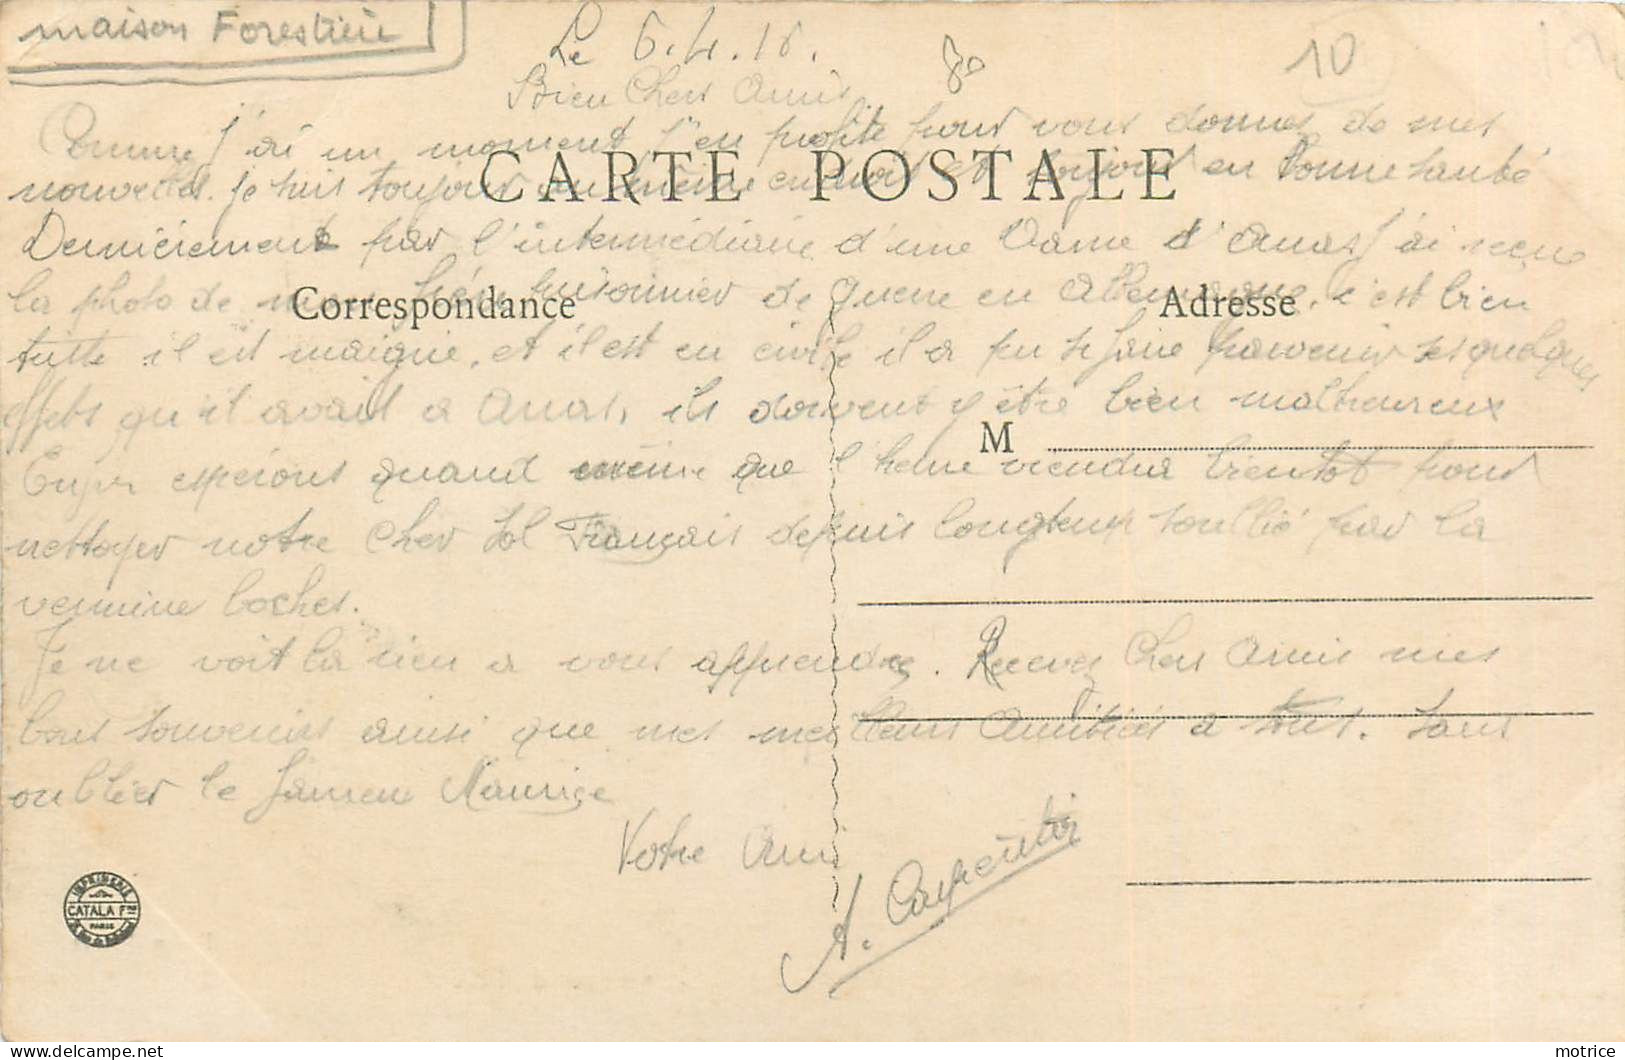 maison Forestière
Le 6.4.16.
80
10
Bien Chers Amis
Comme j'ai un moment j'en profite pour vous donner de mes
CARTE POSTALE
nouvelles. je suis toujours au même endroit et toujours en bonne santé
Dernièrement par l'intermédiaire d'une Dame d'Arras j'ai reçu
la photo de mon frère prisonnier de guerre en Allemagne, c'est bien
Correspondance
Adresse
triste il est maigre, et il est en civile il a pu se faire parvenir ses quelques
effets qu'il avait a Arras, ils doivent y être bien malheureux
M
Enfin espérons quand même que l'heure viendra bientot pour
nettoyer notre cher sol Français depuis longtemps souillé par la
vermine boches.
Je ne voit la rien a vous apprendre. Recevez Chers Amis mes
bons souvenirs ainsi que mes meilleurs Amitiés a tous. Sans
oublier le fameux Maurice
Votre Ami
A. Carpentier
IMPRIMERIE
CATALA Frs
PARIS
motrice